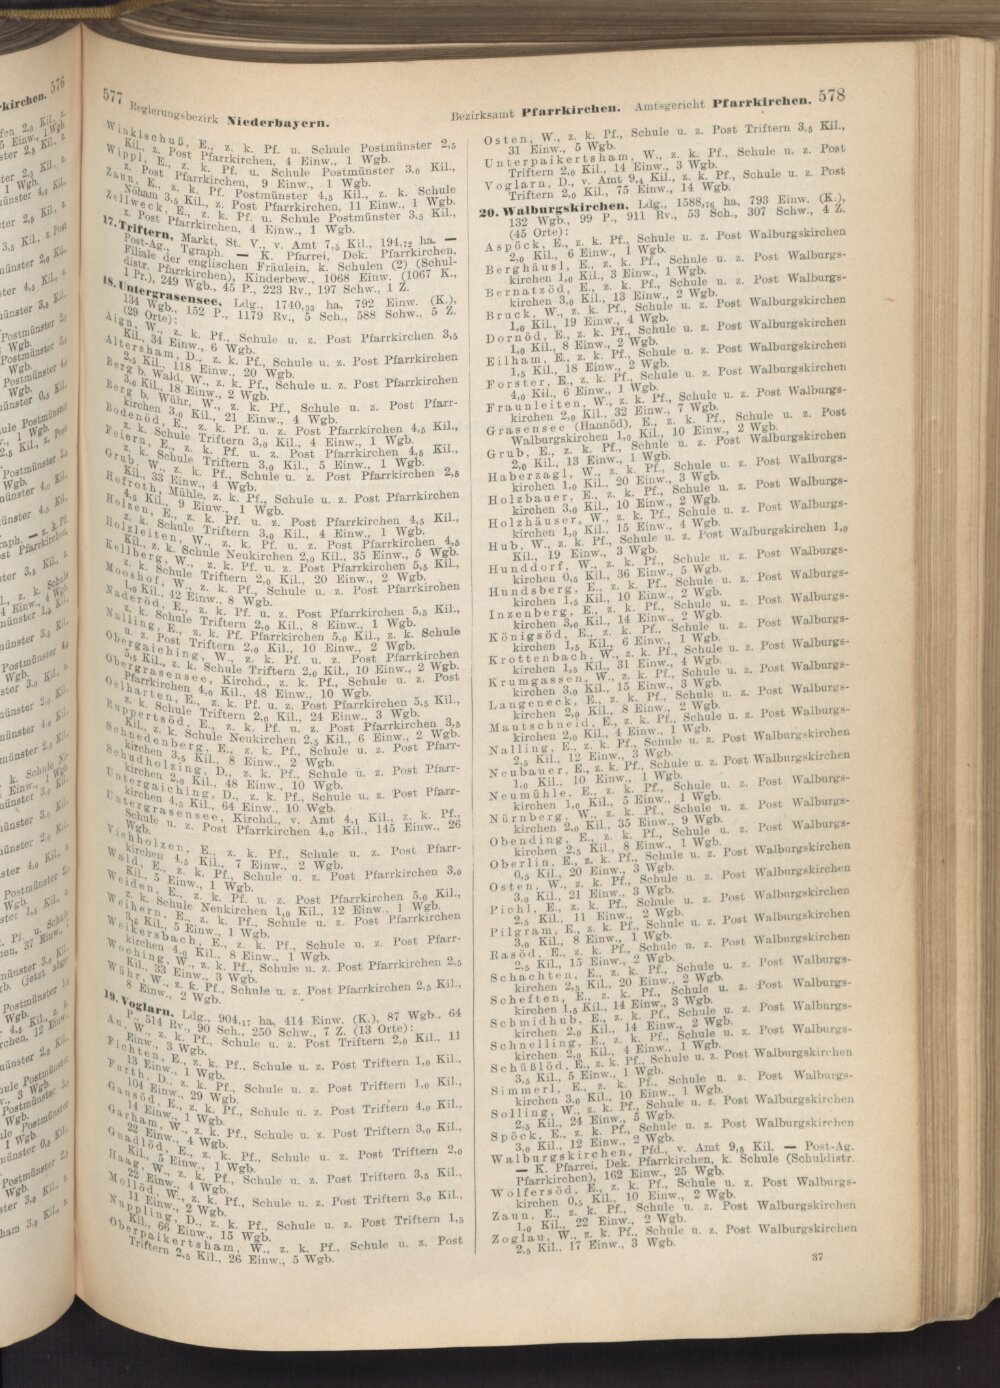 577 Regierungsbezirk Niederbayern.
Bezirksamt Pfarrkirchen. Amtsgericht Pfarrkirchen. 578
Winklschuß, E., z. k. Pf. u. Schule Postmünster 2,5
Kil., z. Post Pfarrkirchen, 4 Einw., 1 Wgb.
Wippl, E., z. k. Pf. u. Schule Postmünster 3,0 Kil.,
z. Post Pfarrkirchen, 9 Einw., 1 Wgb.
Zaun, E., z. k. Pf. Postmünster 4,5 Kil., z. k. Schule
Nöham 3,5 Kil., z. Post Pfarrkirchen, 11 Einw., 1 Wgb.
Zellweck, E., z. k. Pf. u. Schule Postmünster 3,5 Kil.,
z. Post Pfarrkirchen, 4 Einw., 1 Wgb.
17. Triftern, Markt, St. V., v. Amt 7,5 Kil., 194,72 ha. —
Post-Ag., Tgraph. — K. Pfarrei, Dek. Pfarrkirchen,
Filiale der englischen Fräulein, k. Schulen (2) (Schul-
distr. Pfarrkirchen), Kinderbew., 1068 Einw. (1067 K.,
1 Pr.), 249 Wgb., 45 P., 223 Rv., 197 Schw., 1 Z.
18. Untergrasensee, Ldg., 1740,33 ha, 792 Einw. (K.),
134 Wgb., 152 P., 1179 Rv., 5 Sch., 588 Schw., 5 Z.
(29 Orte):
Aign, W., z. k. Pf., Schule u. z. Post Pfarrkirchen 3,5
Kil., 34 Einw., 6 Wgb.
Altersham, D., z. k. Pf., Schule u. z. Post Pfarrkirchen
2,5 Kil., 118 Einw., 20 Wgb.
Berg b. Wald, W., z. k. Pf., Schule u. z. Post Pfarrkirchen
3,0 Kil., 18 Einw., 2 Wgb.
Berg b. Wühr, W., z. k. Pf., Schule u. z. Post Pfarr-
kirchen 3,0 Kil., 21 Einw., 4 Wgb.
Bodenöd, E., z. k. Pf. u. z. Post Pfarrkirchen 4,5 Kil.,
z. k. Schule Triftern 3,0 Kil., 4 Einw., 1 Wgb.
Feiern, E., z. k. Pf. u. z. Post Pfarrkirchen 4,5 Kil.,
z. k. Schule Triftern 3,0 Kil., 5 Einw., 1 Wgb.
Grub, W., z. k. Pf., Schule u. z. Post Pfarrkirchen 2,5
Kil., 33 Einw., 4 Wgb.
Hofroth, Mühle, z. k. Pf., Schule u. z. Post Pfarrkirchen
4,5 Kil., 9 Einw., 1 Wgb.
Holzen, E., z. k. Pf. u. z. Post Pfarrkirchen 4,5 Kil.,
z. k. Schule Triftern 3,0 Kil., 4 Einw., 1 Wgb.
Holzleiten, W., z. k. Pf. u. z. Post Pfarrkirchen 4,5
Kil., z. k. Schule Neukirchen 2,0 Kil., 35 Einw., 5 Wgb.
Kellberg, W., z. k. Pf. u. z. Post Pfarrkirchen 5,5 Kil.,
z. k. Schule Triftern 2,0 Kil., 20 Einw., 2 Wgb.
Mooshof, W., z. k. Pf., Schule u. z. Post Pfarrkirchen
1,0 Kil., 42 Einw., 8 Wgb.
Naderöd, E., z. k. Pf. u. z. Post Pfarrkirchen 5,5 Kil.,
z. k. Schule Triftern 2,0 Kil., 8 Einw., 1 Wgb.
Nailling, E., z. k. Pf. Pfarrkirchen 5,0 Kil., z. k. Schule
u. z. Post Triftern 2,0 Kil., 10 Einw., 2 Wgb.
Obergaiching, W., z. k. Pf. u. z. Post Pfarrkirchen
5,5 Kil., z. k. Schule Triftern 2,0 Kil., 10 Einw., 2 Wgb.
Obergrasensee, Kirchd., z. k. Pf., Schule u. z. Post
Pfarrkirchen 4,0 Kil., 48 Einw., 10 Wgb.
Oelharten, E., z. k. Pf. u. z. Post Pfarrkirchen 5,5 Kil.,
z. k. Schule Triftern 2,0 Kil., 24 Einw., 3 Wgb.
Ruppertsöd, E., z. k. Pf. u. z. Post Pfarrkirchen 3,5
Kil., z. k. Schule Neukirchen 2,5 Kil., 6 Einw., 2 Wgb.
Schnedenberg, E., z. k. Pf., Schule u. z. Post Pfarr-
kirchen 3,5 Kil., 8 Einw., 2 Wgb.
Schudholzing, D., z. k. Pf., Schule u. z. Post Pfarr-
kirchen 2,0 Kil., 48 Einw., 10 Wgb.
Untergaiching, D., z. k. Pf., Schule u. z. Post Pfarr-
kirchen 4,5 Kil., 64 Einw., 10 Wgb.
Untergrasensee, Kirchd., v. Amt 4,1 Kil., z. k. Pf.,
Schule u. z. Post Pfarrkirchen 4,0 Kil., 145 Einw., 26
Wgb.
Viehholzen, E., z. k. Pf., Schule u. z. Post Pfarr-
kirchen 4,5 Kil., 7 Einw., 2 Wgb.
Wald, E., z. k. Pf., Schule u. z. Post Pfarrkirchen 3,0
Kil., 5 Einw., 1 Wgb.
Weiden, E., z. k. Pf. u. z. Post Pfarrkirchen 5,0 Kil.,
z. k. Schule Neukirchen 1,0 Kil., 12 Einw., 1 Wgb.
Weihern, E., z. k. Pf., Schule u. z. Post Pfarrkirchen
3,5 Kil., 5 Einw., 1 Wgb.
Weikersbach, E., z. k. Pf., Schule u. z. Post Pfarr-
kirchen 4,0 Kil., 8 Einw., 1 Wgb.
Woching, W., z. k. Pf., Schule u. z. Post Pfarrkirchen 2,5
Kil., 33 Einw., 3 Wgb.
Wühr, W., z. k. Pf., Schule u. z. Post Pfarrkirchen 2,5 Kil.,
8 Einw., 2 Wgb.
19. Voglarn, Ldg., 904,17 ha, 414 Einw. (K.), 87 Wgb., 64
P., 514 Rv., 90 Sch., 250 Schw., 7 Z. (13 Orte):
Au, W., z. k. Pf., Schule u. z. Post Triftern 2,0 Kil., 11
Einw., 3 Wgb.
Fichten, E., z. k. Pf., Schule u. z. Post Triftern 1,0 Kil.,
13 Einw., 1 Wgb.
Furth, D., z. k. Pf., Schule u. z. Post Triftern 1,0 Kil.,
104 Einw., 29 Wgb.
Gansöd, E., z. k. Pf., Schule u. z. Post Triftern 4,0 Kil.,
14 Einw., 1 Wgb.
Garham, W., z. k. Pf., Schule u. z. Post Triftern 3,0 Kil.,
22 Einw., 4 Wgb.
Gnadlöd, E., z. k. Pf., Schule u. z. Post Triftern 2,0
Kil., 5 Einw., 1 Wgb.
Haag, W., z. k. Pf., Schule u. z. Post Triftern 3,5 Kil.,
22 Einw., 4 Wgb.
Mollöd, W., z. k. Pf., Schule u. z. Post Triftern 3,0 Kil.,
11 Einw., 2 Wgb.
Nuppling, D., z. k. Pf., Schule u. z. Post Triftern 1,5
Kil., 66 Einw., 15 Wgb.
Oberpaikertsham, W., z. k. Pf., Schule u. z. Post
Triftern 2,5 Kil., 26 Einw., 5 Wgb.
Osten, W., z. k. Pf., Schule u. z. Post Triftern 3,5 Kil.,
31 Einw., 5 Wgb.
Unterpaikertsham, W., z. k. Pf., Schule u. z. Post
Triftern 2,0 Kil., 14 Einw., 3 Wgb.
Voglarn, D., v. Amt 9,4 Kil., z. k. Pf., Schule u. z. Post
Triftern 2,0 Kil., 75 Einw., 14 Wgb.
20. Walburgskirchen, Ldg., 1588,76 ha, 793 Einw. (K.),
132 Wgb., 99 P., 911 Rv., 53 Sch., 307 Schw., 4 Z.
(45 Orte):
Aspöck, E., z. k. Pf., Schule u. z. Post Walburgskirchen
2,0 Kil., 6 Einw., 1 Wgb.
Berghäusl, E., z. k. Pf., Schule u. z. Post Walburgs-
kirchen 1,0 Kil., 3 Einw., 1 Wgb.
Bernatzöd, E., z. k. Pf., Schule u. z. Post Walburgs-
kirchen 3,0 Kil., 13 Einw., 2 Wgb.
Bruck, W., z. k. Pf., Schule u. z. Post Walburgskirchen
1,0 Kil., 19 Einw., 4 Wgb.
Dornöd, E., z. k. Pf., Schule u. z. Post Walburgskirchen
1,0 Kil., 8 Einw., 2 Wgb.
Eilham, E., z. k. Pf., Schule u. z. Post Walburgskirchen
1,5 Kil., 18 Einw., 2 Wgb.
Forster, E., z. k. Pf., Schule u. z. Post Walburgskirchen
4,0 Kil., 6 Einw., 1 Wgb.
Fraunleiten, W., z. k. Pf., Schule u. z. Post Walburgs-
kirchen 2,0 Kil., 32 Einw., 7 Wgb.
Grasensee (Hannöd), E., z. k. Pf., Schule u. z. Post
Walburgskirchen 1,0 Kil., 10 Einw., 2 Wgb.
Grub, E., z. k. Pf., Schule u. z. Post Walburgskirchen
2,0 Kil., 13 Einw., 1 Wgb.
Haberzagl, W., z. k. Pf., Schule u. z. Post Walburgs-
kirchen 1,0 Kil., 20 Einw., 3 Wgb.
Holzbauer, E., z. k. Pf., Schule u. z. Post Walburgs-
kirchen 3,0 Kil., 10 Einw., 2 Wgb.
Holzhäuser, W., z. k. Pf., Schule u. z. Post Walburgs-
kirchen 1,0 Kil., 15 Einw., 4 Wgb.
Hub, W., z. k. Pf., Schule u. z. Post Walburgskirchen 1,0
Kil., 19 Einw., 3 Wgb.
Hunddorf, W., z. k. Pf., Schule u. z. Post Walburgs-
kirchen 0,5 Kil., 36 Einw., 5 Wgb.
Hundsberg, E., z. k. Pf., Schule u. z. Post Walburgs-
kirchen 1,5 Kil., 10 Einw., 2 Wgb.
Inzenberg, E., z. k. Pf., Schule u. z. Post Walburgs-
kirchen 3,0 Kil., 14 Einw., 2 Wgb.
Königsöd, E., z. k. Pf., Schule u. z. Post Walburgs-
kirchen 1,5 Kil., 6 Einw., 1 Wgb.
Krottenbach, W., z. k. Pf., Schule u. z. Post Walburgs-
kirchen 1,5 Kil., 31 Einw., 4 Wgb.
Krumgassen, W., z. k. Pf., Schule u. z. Post Walburgs-
kirchen 3,0 Kil., 15 Einw., 3 Wgb.
Langeneck, E., z. k. Pf., Schule u. z. Post Walburgs-
kirchen 2,0 Kil., 8 Einw., 2 Wgb.
Mautschneid, E., z. k. Pf., Schule u. z. Post Walburgs-
kirchen 2,0 Kil., 4 Einw., 1 Wgb.
Nalling, E., z. k. Pf., Schule u. z. Post Walburgskirchen
2,5 Kil., 12 Einw., 3 Wgb.
Neubauer, E., z. k. Pf., Schule u. z. Post Walburgskirchen
1,0 Kil., 10 Einw., 1 Wgb.
Neumühle, E., z. k. Pf., Schule u. z. Post Walburgs-
kirchen 1,0 Kil., 5 Einw., 1 Wgb.
Nürnberg, W., z. k. Pf., Schule u. z. Post Walburgs-
kirchen 2,0 Kil., 35 Einw., 9 Wgb.
Obending, E., z. k. Pf., Schule u. z. Post Walburgs-
kirchen 2,5 Kil., 8 Einw., 1 Wgb.
Oberlin, E., z. k. Pf., Schule u. z. Post Walburgskirchen
0,5 Kil., 20 Einw., 3 Wgb.
Osten, W., z. k. Pf., Schule u. z. Post Walburgskirchen
3,0 Kil., 21 Einw., 3 Wgb.
Pichl, E., z. k. Pf., Schule u. z. Post Walburgskirchen
2,5 Kil., 11 Einw., 2 Wgb.
Pilgram, E., z. k. Pf., Schule u. z. Post Walburgskirchen
3,0 Kil., 8 Einw., 1 Wgb.
Rasöd, E., z. k. Pf., Schule u. z. Post Walburgskirchen
2,5 Kil., 15 Einw., 2 Wgb.
Schachten, E., z. k. Pf., Schule u. z. Post Walburgs-
kirchen 2,5 Kil., 20 Einw., 2 Wgb.
Scheften, E., z. k. Pf., Schule u. z. Post Walburgs-
kirchen 1,5 Kil., 14 Einw., 3 Wgb.
Schmidhub, E., z. k. Pf., Schule u. z. Post Walburgs-
kirchen 2,0 Kil., 14 Einw., 2 Wgb.
Schnelling, E., z. k. Pf., Schule u. z. Post Walburgs-
kirchen 2,0 Kil., 4 Einw., 1 Wgb.
Schüßlöd, E., z. k. Pf., Schule u. z. Post Walburgskirchen
3,5 Kil., 5 Einw., 1 Wgb.
Simmerl, E., z. k. Pf., Schule u. z. Post Walburgs-
kirchen 3,0 Kil., 10 Einw., 1 Wgb.
Solling, W., z. k. Pf., Schule u. z. Post Walburgskirchen
2,5 Kil., 24 Einw., 5 Wgb.
Spöck, E., z. k. Pf., Schule u. z. Post Walburgskirchen
3,0 Kil., 12 Einw., 2 Wgb.
Walburgskirchen, Pfd., v. Amt 9,5 Kil. — Post-Ag.
— K. Pfarrei, Dek. Pfarrkirchen, k. Schule (Schuldistr.
Pfarrkirchen), 162 Einw., 25 Wgb.
Wolfersöd, E., z. k. Pf., Schule u. z. Post Walburgs-
kirchen 0,5 Kil., 10 Einw., 2 Wgb.
Zaun, E., z. k. Pf., Schule u. z. Post Walburgskirchen
1,0 Kil., 22 Einw., 2 Wgb.
Zoglau, W., z. k. Pf., Schule u. z. Post Walburgskirchen
2,5 Kil., 17 Einw., 3 Wgb.
37